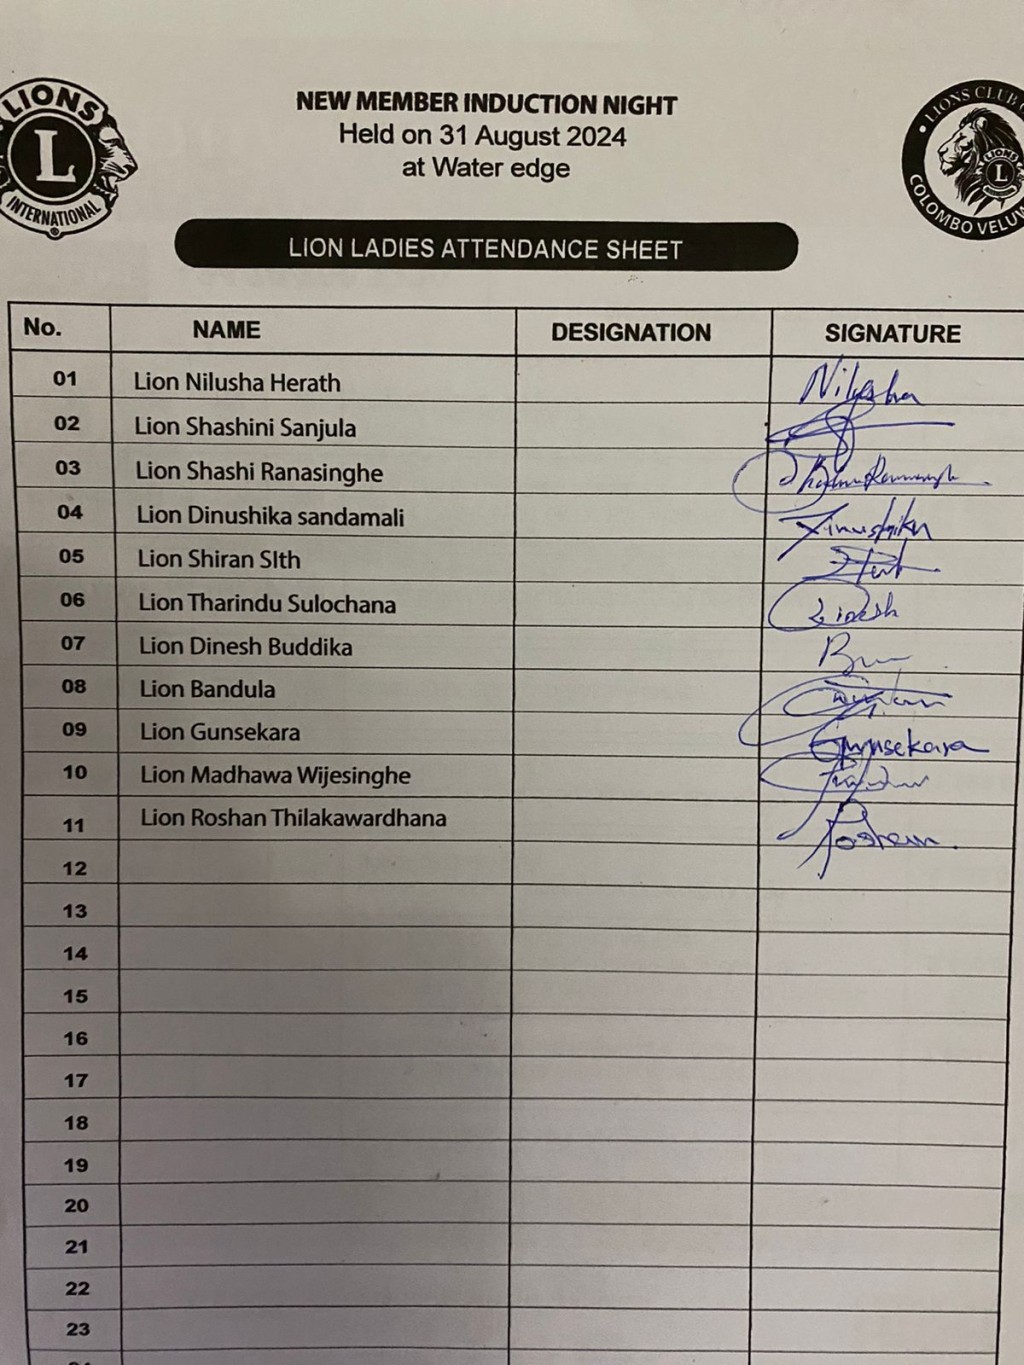 LIONS
L
INTERNATIONAL
NEW MEMBER INDUCTION NIGHT
Held on 31 August 2024
at Water edge
LIONS CLUB
LIONS
L
COLOMBO
LION LADIES ATTENDANCE SHEET
No. NAME DESIGNATION SIGNATURE
01 Lion Nilusha Herath Nilusha
02 Lion Shashini Sanjula
03 Lion Shashi Ranasinghe
04 Lion Dinushika sandamali Dinushika
05 Lion Shiran SIth
06 Lion Tharindu Sulochana Dinesh
07 Lion Dinesh Buddika
08 Lion Bandula
09 Lion Gunsekara Gunsekara
10 Lion Madhawa Wijesinghe
11 Lion Roshan Thilakawardhana Roshan
12
13
14
15
16
17
18
19
20
21
22
23